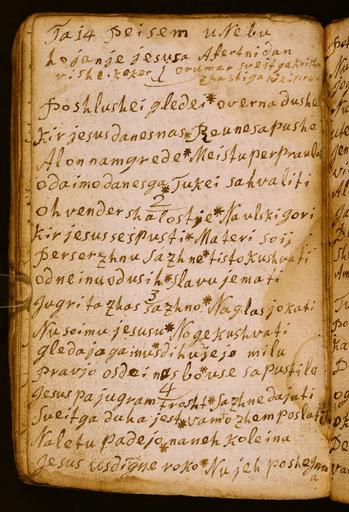 Ta 14 Peisem u Nebu
hojanje jesusa Afertnidan
vishe. koker } orumar sveitga kristu
zhastiga
Poshlushei gleder * overna dushe
kir jesus danes nas * Reunesapushe
Alon nam grede * Mei stu per pravla
odaimo danes ga * Tukei sahvaliti
2
oh vender shalostje * Na ulski gori
kir jesus se spusti * Materi soij
Perserzhnu sazhne * tisto kushvati
od ne inu od usih * slavu jemati
3
Jugri ta zhas sazhno * Na glas jokati
Nu soimu jesusu * Noge kushvati
gledajo ga inusdihujejo milu
Pravjo osdei nas * bo use sapustilo
4
jesus pa jugram trosht * sazhne dajati
Sveitga duha jest * vam ozhem poslati
Na letu padejo * na neh koleina
jesus usdigne roko * Nu jeh poshegna